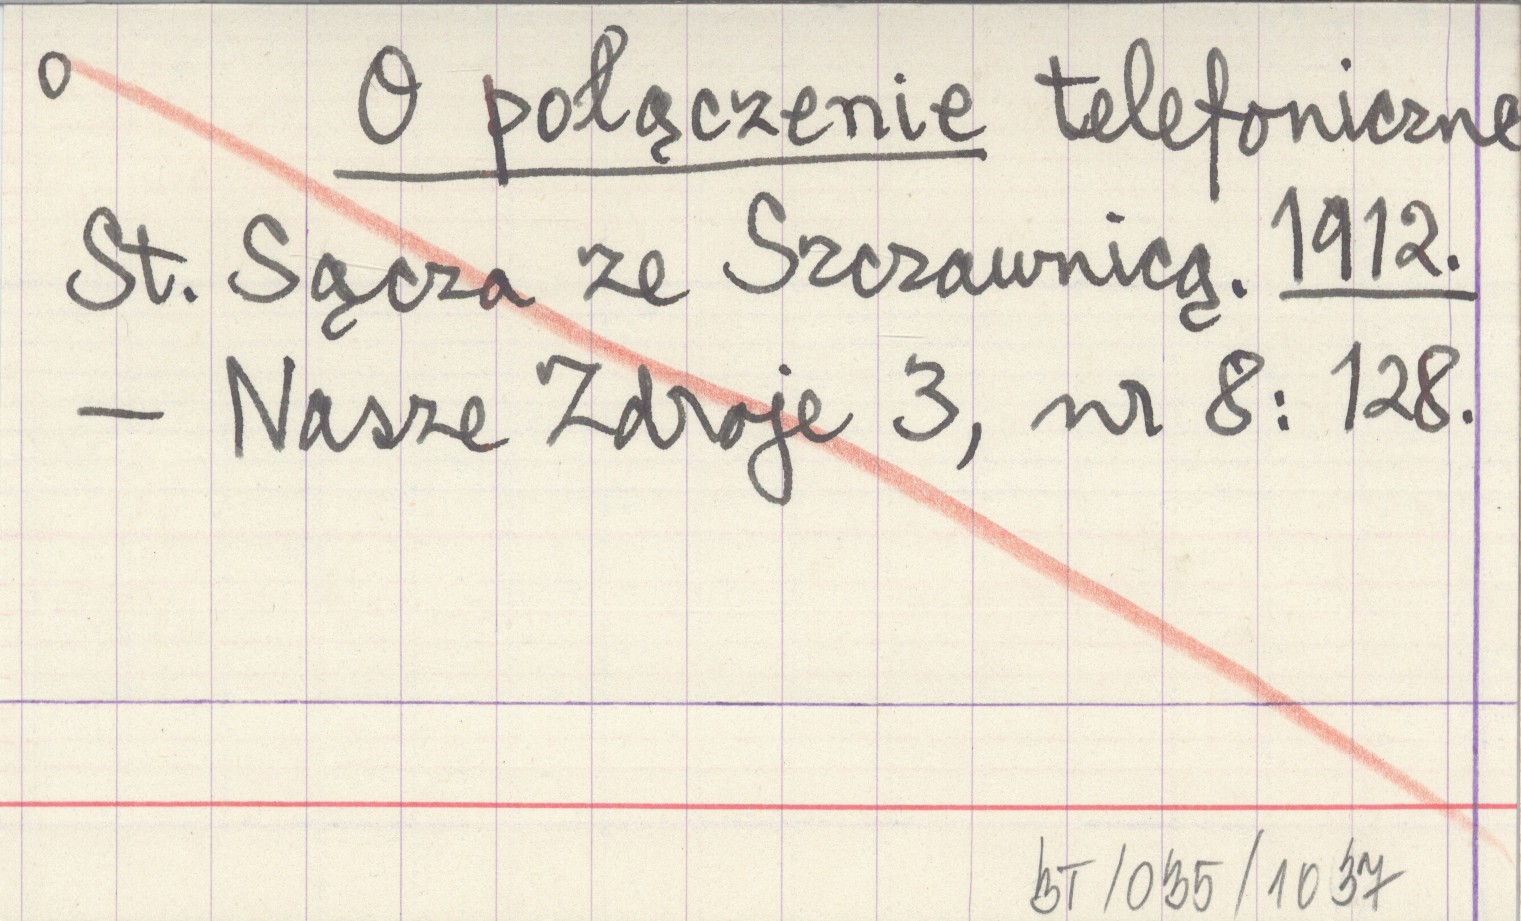 O O połączenie telefoniczne
St. Sącza ze Szczawnicą. 1912.
– Nasze Zdroje 3, nr 8: 128.
BT/035/1037